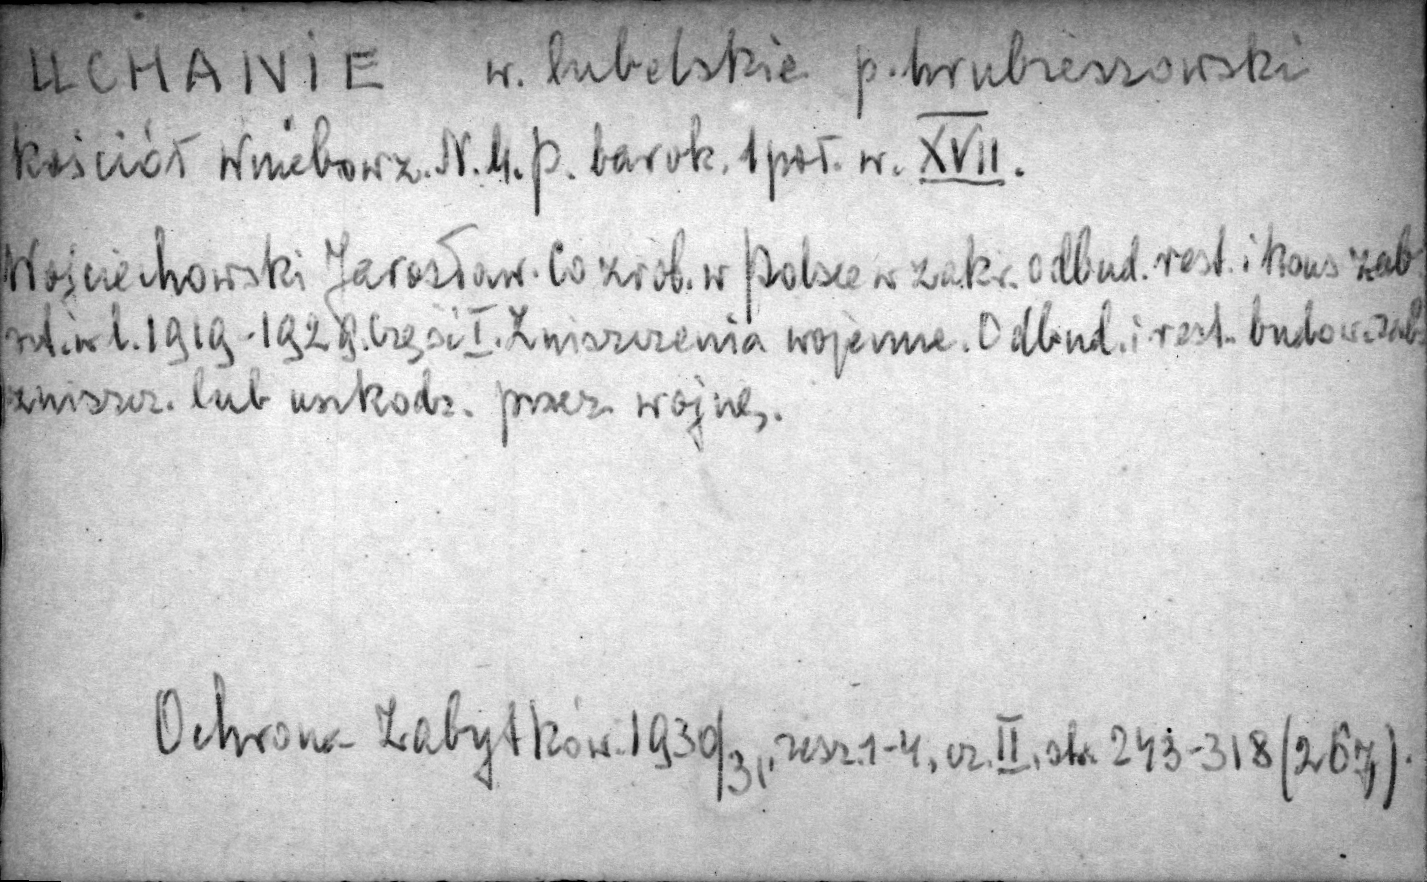 UCHANIE w. lubelskie p. hrubieszowski
kościół Wniebowz. N.M.P. barok. 1 poł. w. XVII.
Wojciechowski Jarosław. Co zrob. w Polsce w zakr. odbud. rest. i kons zab
szt. w l. 1919-1929. Część I. Zniszczenia wojenne. Odbud. i rest. budow. zab.
zniszcz. lub uszkodz. przez wojnę.
Ochrona Zabytków. 1930/31, zesz. 1-4, cz. II, str. 243-318 (267).